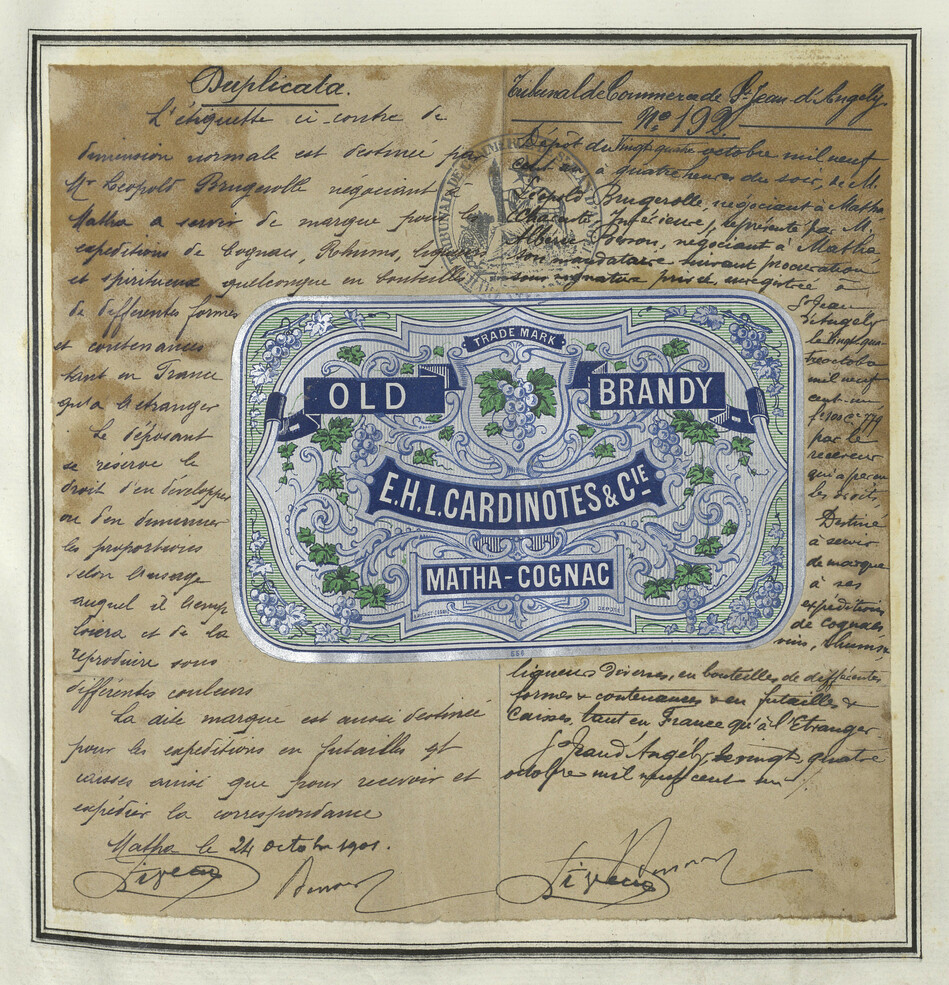 Duplicata.
L'étiquette ci-contre de
dimension normale est destinée par
Mr Léopold Brugerolle négociant à
Matha a servir de marque pour les
expéditions de Cognac, Rhums, liqueurs
et spiritueux quelconque en bouteilles
de différentes formes
et contenances
tant en France
qu'a l'étranger
Le déposant
se réserve le
droit d'en développer
ou d'en diminuer
les proportions
selon l'usage
auquel il l'emp
loiera et de la
reproduire sous
différentes couleurs
La dite marque est aussi destinée
pour les expéditions en futailles et
caisses ainsi que pour recevoir et
expédier la correspondance
Matha le 24 octobre 1901.
Tribunal de Commerce de St Jean d'Angely
No 192
Dépôt du vingt quatre octobre mil neuf
cent un à quatre heures du soir, de M.
Léopold Brugerolle, négociant à Matha
(Charente Inférieure), représenté par M.
négociant à Matha
son mandataire suivant procuration
sous signature privée, enregistrée à
St Jean
d'Angely
le vingt qua-
tre octobre
mil neuf
cent un
par le
receveur
qui a perçu
les droits,
Destiné
à servir
de marque
à ses
expéditions
de cognacs
vins, rhums,
liqueurs diverses, en bouteilles de différentes
formes & contenances & en futailles &
Caisses, tant en France qu'à l'Etranger
St Jean d'Angély, le vingt quatre
octobre mil neuf cent un
TRADE MARK
OLD BRANDY
E.H.L. CARDINOTES & CIE
MATHA-COGNAC
DÉPOSÉ